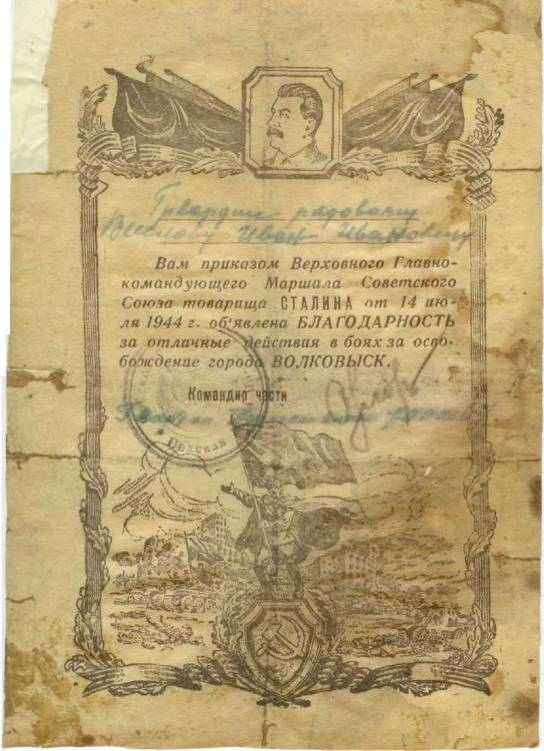 Гвардии рядовому
Иван Иванович
Вам приказом Верховного Главно-
командующего Маршала Советского
Союза товарища СТАЛИНА от 14 ию-
ля 1944 г. об'явлена БЛАГОДАРНОСТЬ
за отличные действия в боях за осво-
бождение города ВОЛКОВЫСК.
Командир части
Гвардии